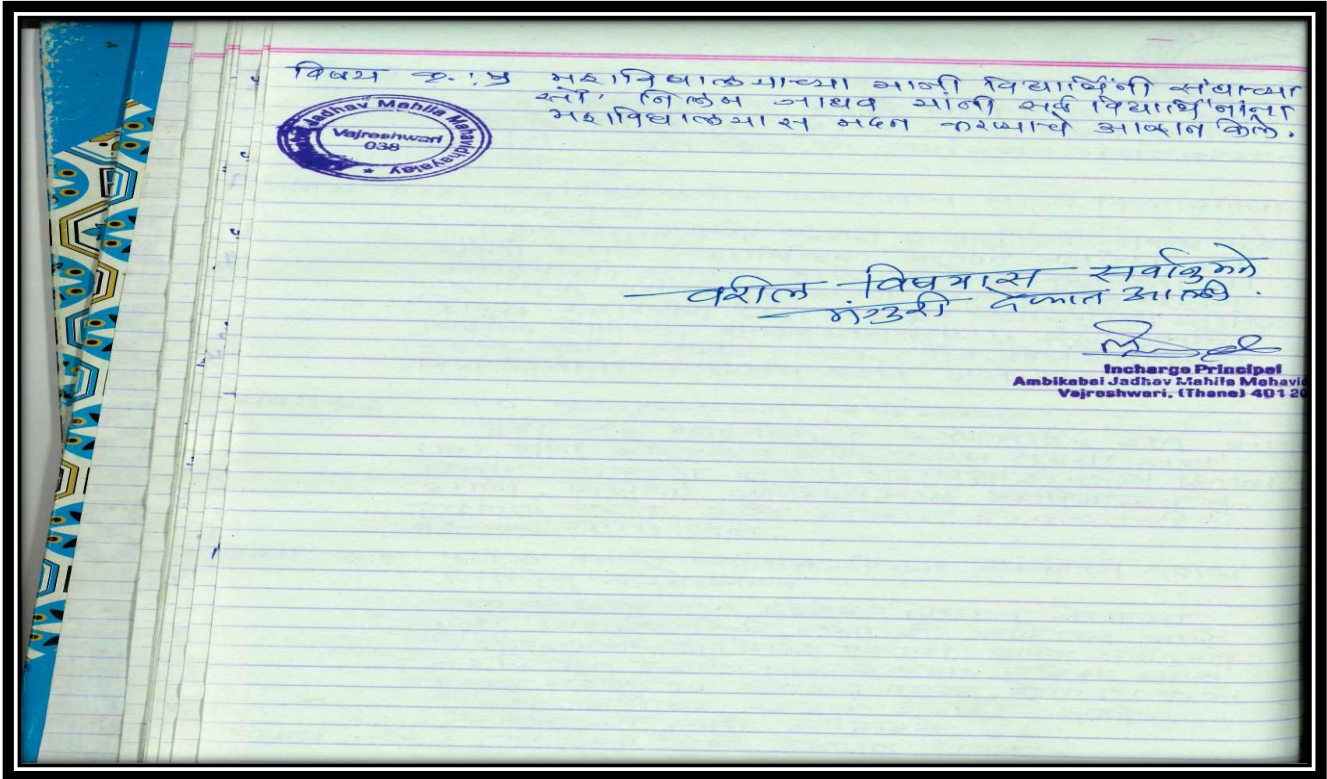 विषय क्र. : ५ महाविद्यालयाच्या माजी विद्यार्थिनी संघाच्या
सौ. निलम जाधव यांनी सर्व विद्यार्थिनींना
महाविद्यालयास मदत करण्याचे आव्हान केले.
Jadhav Mahila Mahavidhayalay
Vajreshwari
038
वरील विषयास सर्वानुमते
मंजुरी देण्यात आली.
Incharge Principal
Ambikabai Jadhav Mahila Mahavid
Vajreshwari, (Thane) 401 20